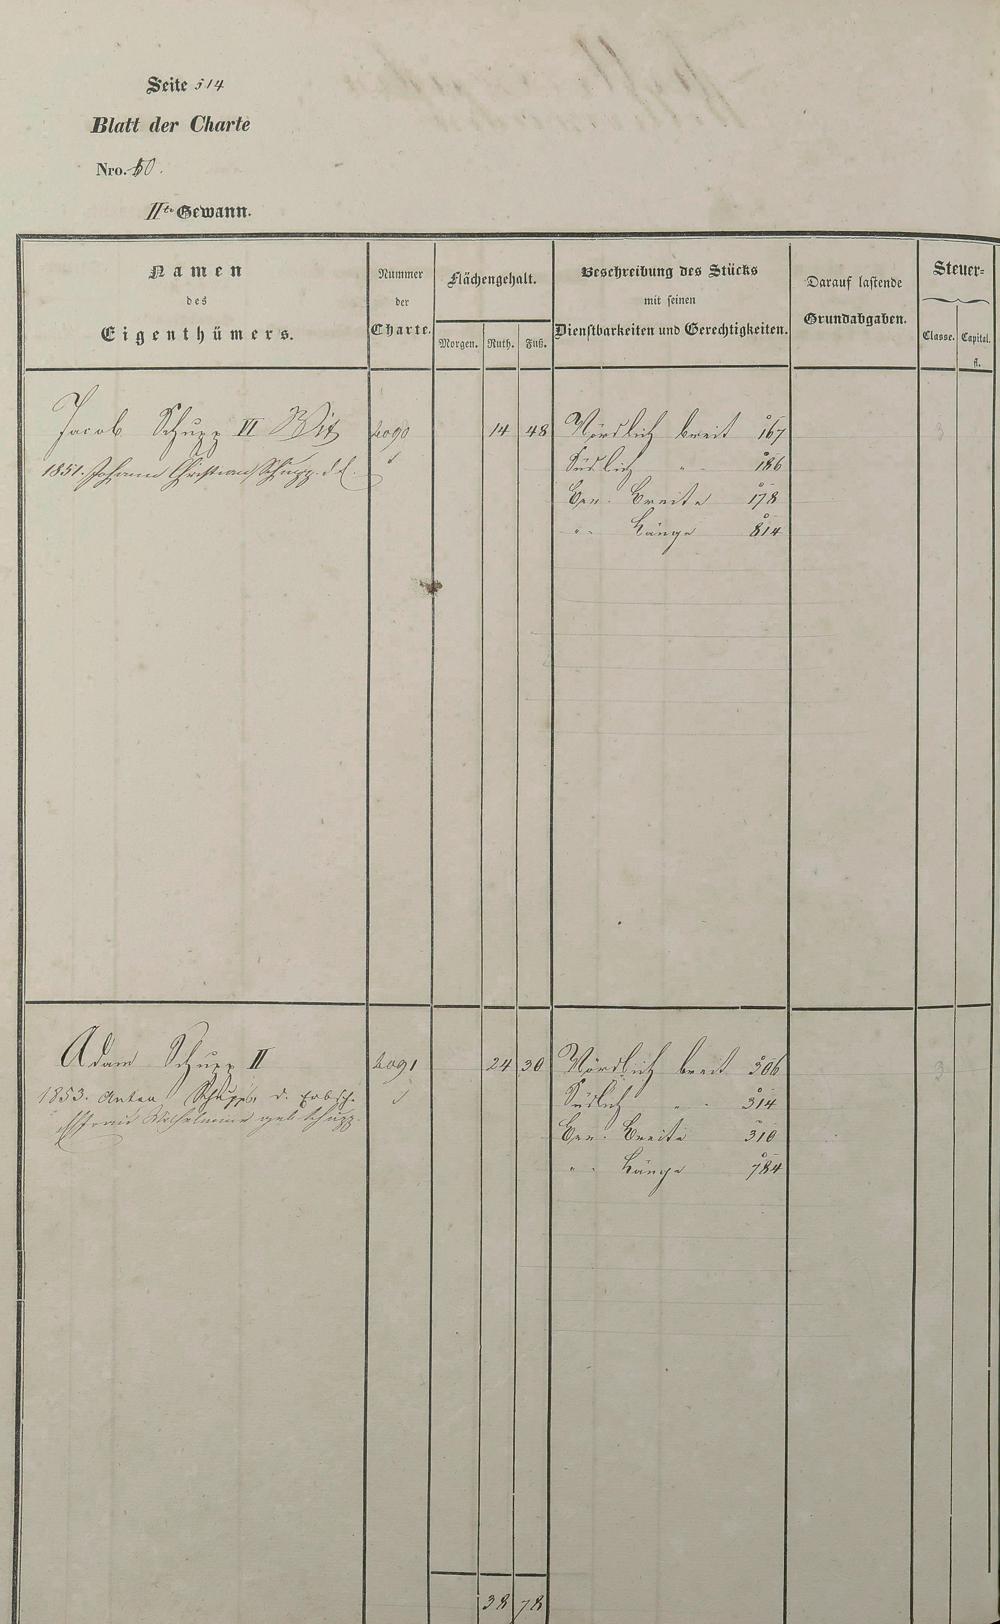 Seite 514
Blatt der Charte
Nro. 50.
IIte Gewann.
Namen
des
Eigenthümers.
Nummer
der
Charte.
Flächengehalt.
Morgen. Ruth. Fuß.
Beschreibung des Stücks
mit seinen
Dienstbarkeiten und Gerechtigkeiten.
Darauf lastende
Grundabgaben.
Steuer=
Classe. Capital.
fl.
Jacob Schupp VI Wit 2090 14 48 Nördlich breit 167 3
1851. Johann Christian Schupp. d. E. Südlich " - 186
Ger. Breite 178
" - Länge 814
Adam Schupp II 2091 24 30 Nördlich breit 306 3
1853. Anton Schupps, d. Südlich " - 314
Wilhelmine geb Schupp. Ger. Breite 310
" - Länge 784
38 78